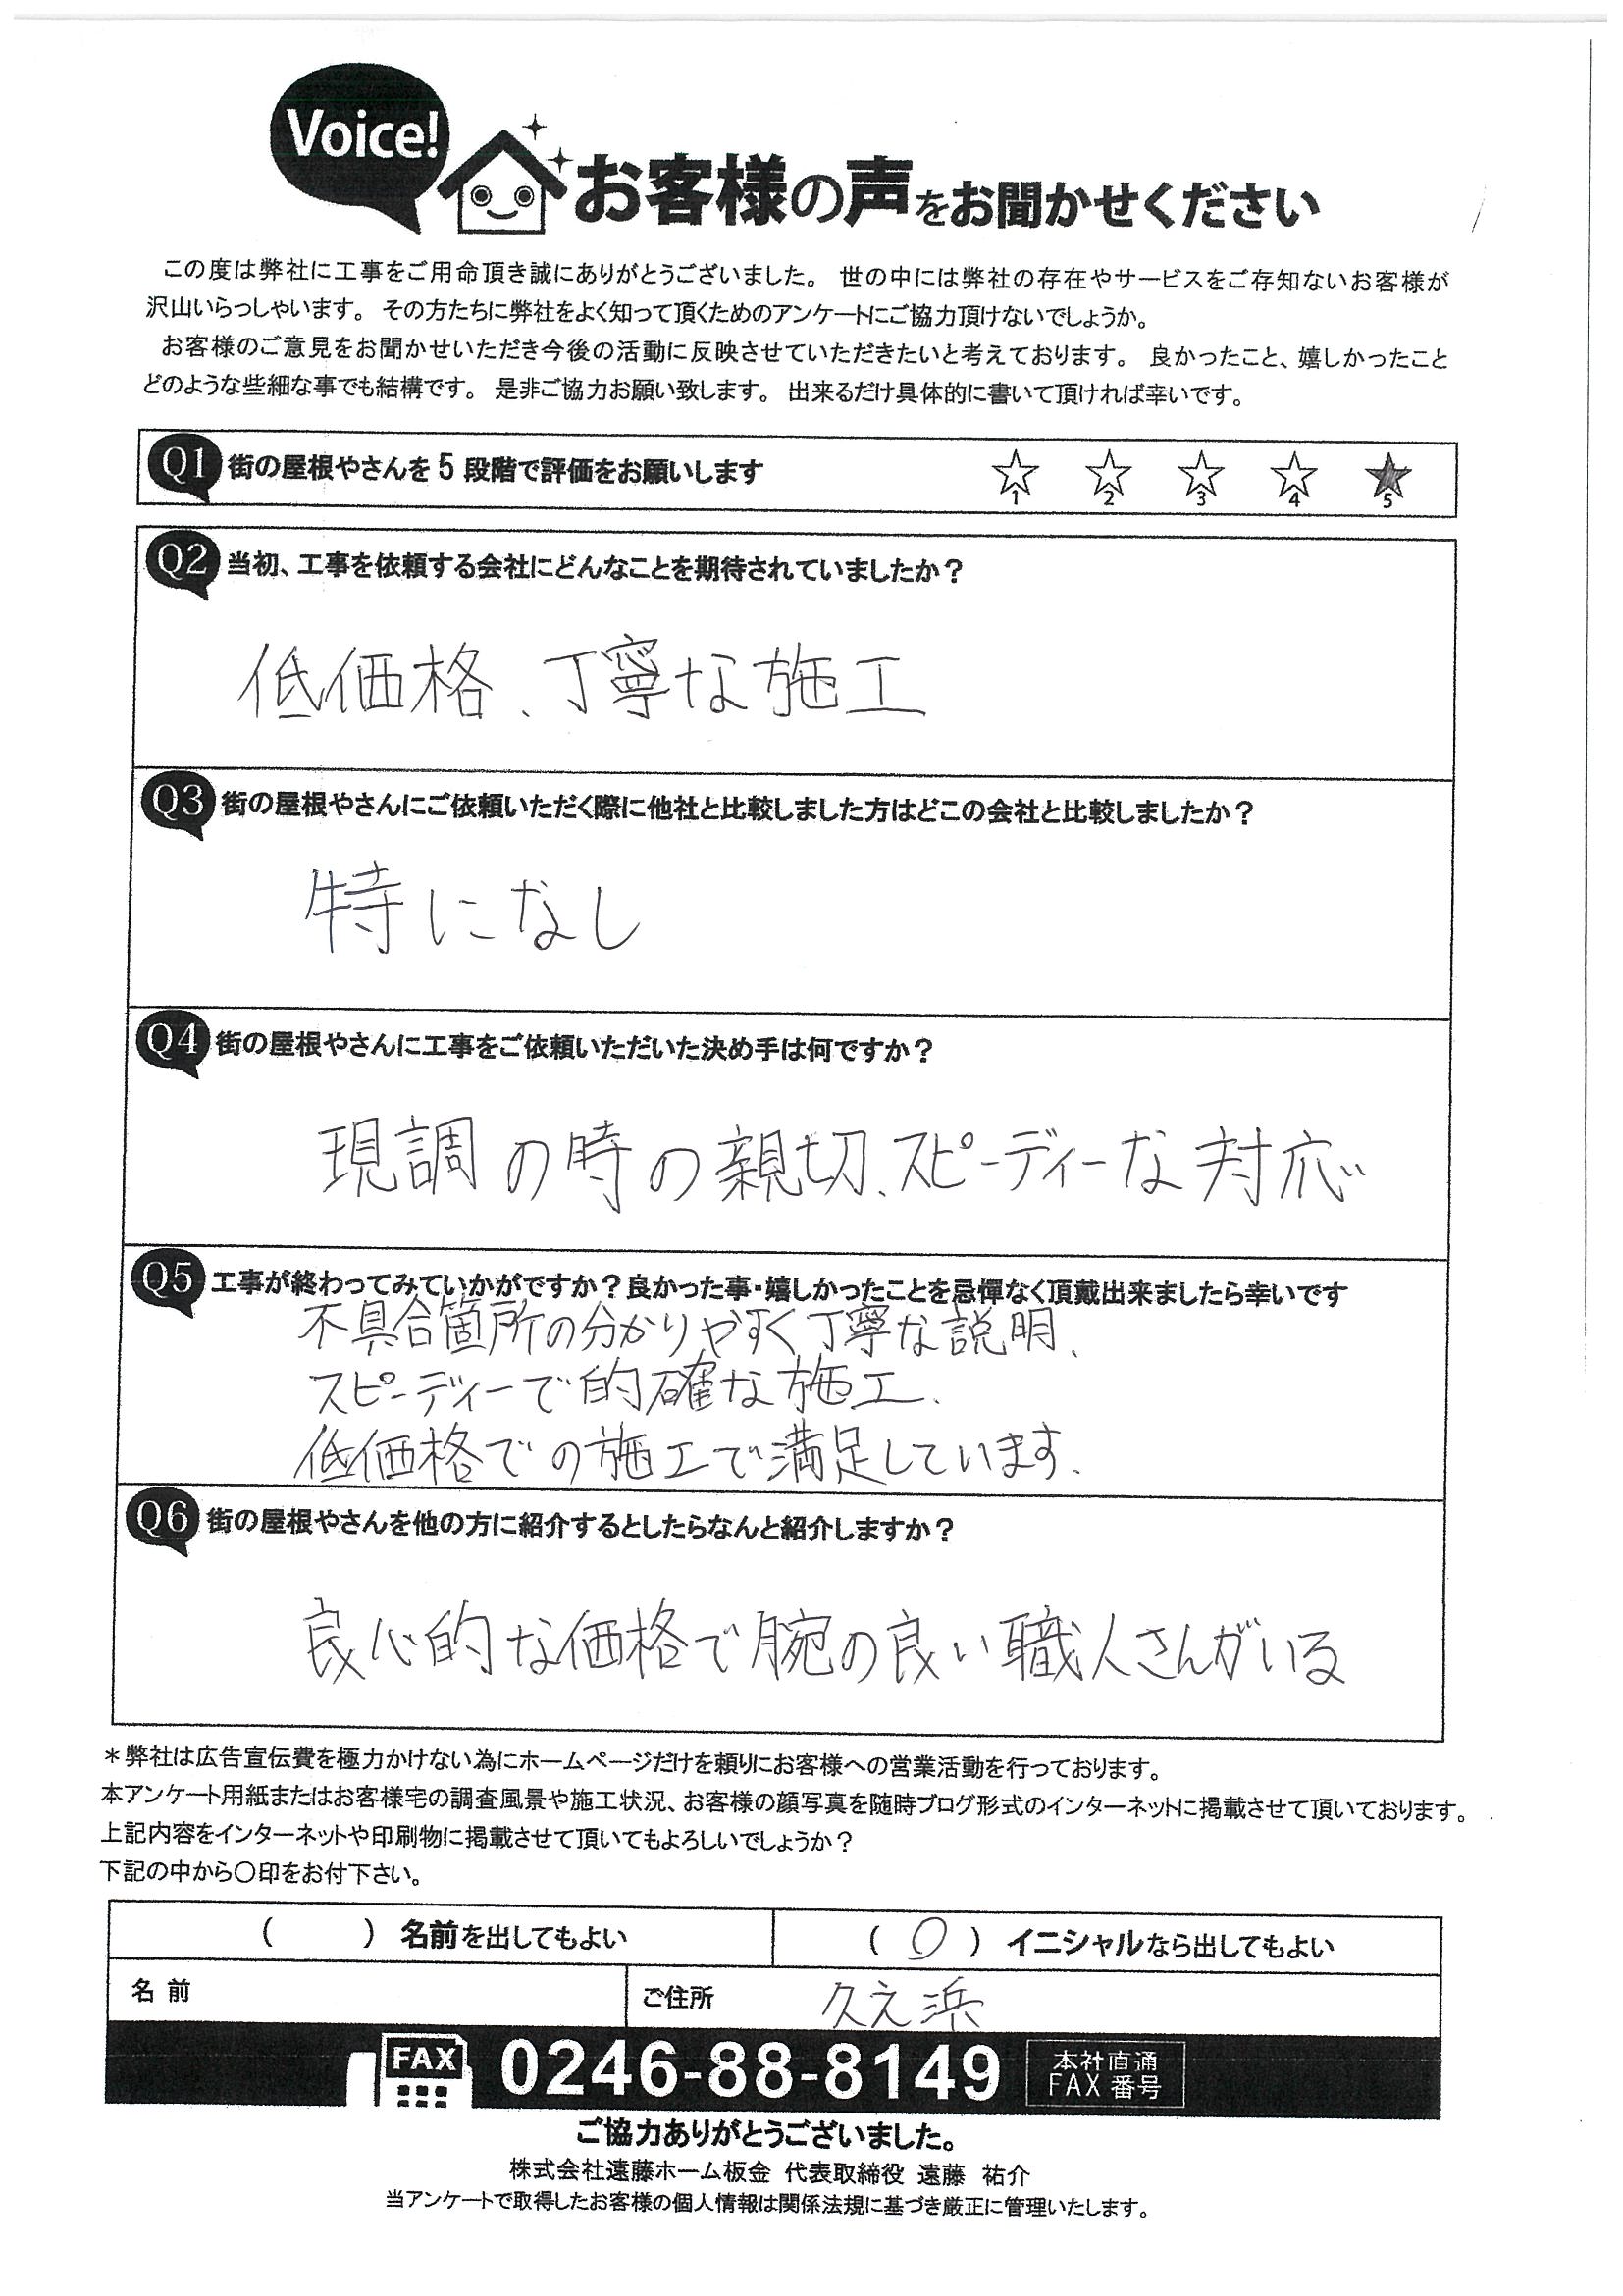 Voice!
お客様の声をお聞かせください
この度は弊社に工事をご用命頂き誠にありがとうございました。 世の中には弊社の存在やサービスをご存知ないお客様が
沢山いらっしゃいます。 その方たちに弊社をよく知って頂くためのアンケートにご協力頂けないでしょうか。
お客様のご意見をお聞かせいただき今後の活動に反映させていただきたいと考えております。 良かったこと、嬉しかったこと
どのような些細な事でも結構です。 是非ご協力お願い致します。 出来るだけ具体的に書いて頂ければ幸いです。
Q1 街の屋根やさんを5段階で評価をお願いします ☆1 ☆2 ☆3 ☆4 ★5
Q2 当初、工事を依頼する会社にどんなことを期待されていましたか？
低価格、丁寧な施工
Q3 街の屋根やさんにご依頼いただく際に他社と比較しました方はどこの会社と比較しましたか？
特になし
Q4 街の屋根やさんに工事をご依頼いただいた決め手は何ですか？
現調の時の親切、スピーディーな対応
Q5 工事が終わってみていかがですか？良かった事・嬉しかったことを忌憚なく頂戴出来ましたら幸いです
不具合箇所の分かりやすく丁寧な説明、
スピーディーで的確な施工、
低価格での施工で満足しています。
Q6 街の屋根やさんを他の方に紹介するとしたらなんと紹介しますか？
良心的な価格で腕の良い職人さんがいる
＊弊社は広告宣伝費を極力かけない為にホームページだけを頼りにお客様への営業活動を行っております。
本アンケート用紙またはお客様宅の調査風景や施工状況、お客様の顔写真を随時ブログ形式のインターネットに掲載させて頂いております。
上記内容をインターネットや印刷物に掲載させて頂いてもよろしいでしょうか？
下記の中から〇印をお付下さい。
（　　）名前を出してもよい （〇）イニシャルなら出してもよい
名 前 ご住所 久之浜
FAX 0246-88-8149 本社直通
FAX 番号
ご協力ありがとうございました。
株式会社遠藤ホーム板金 代表取締役 遠藤 祐介
当アンケートで取得したお客様の個人情報は関係法規に基づき厳正に管理いたします。